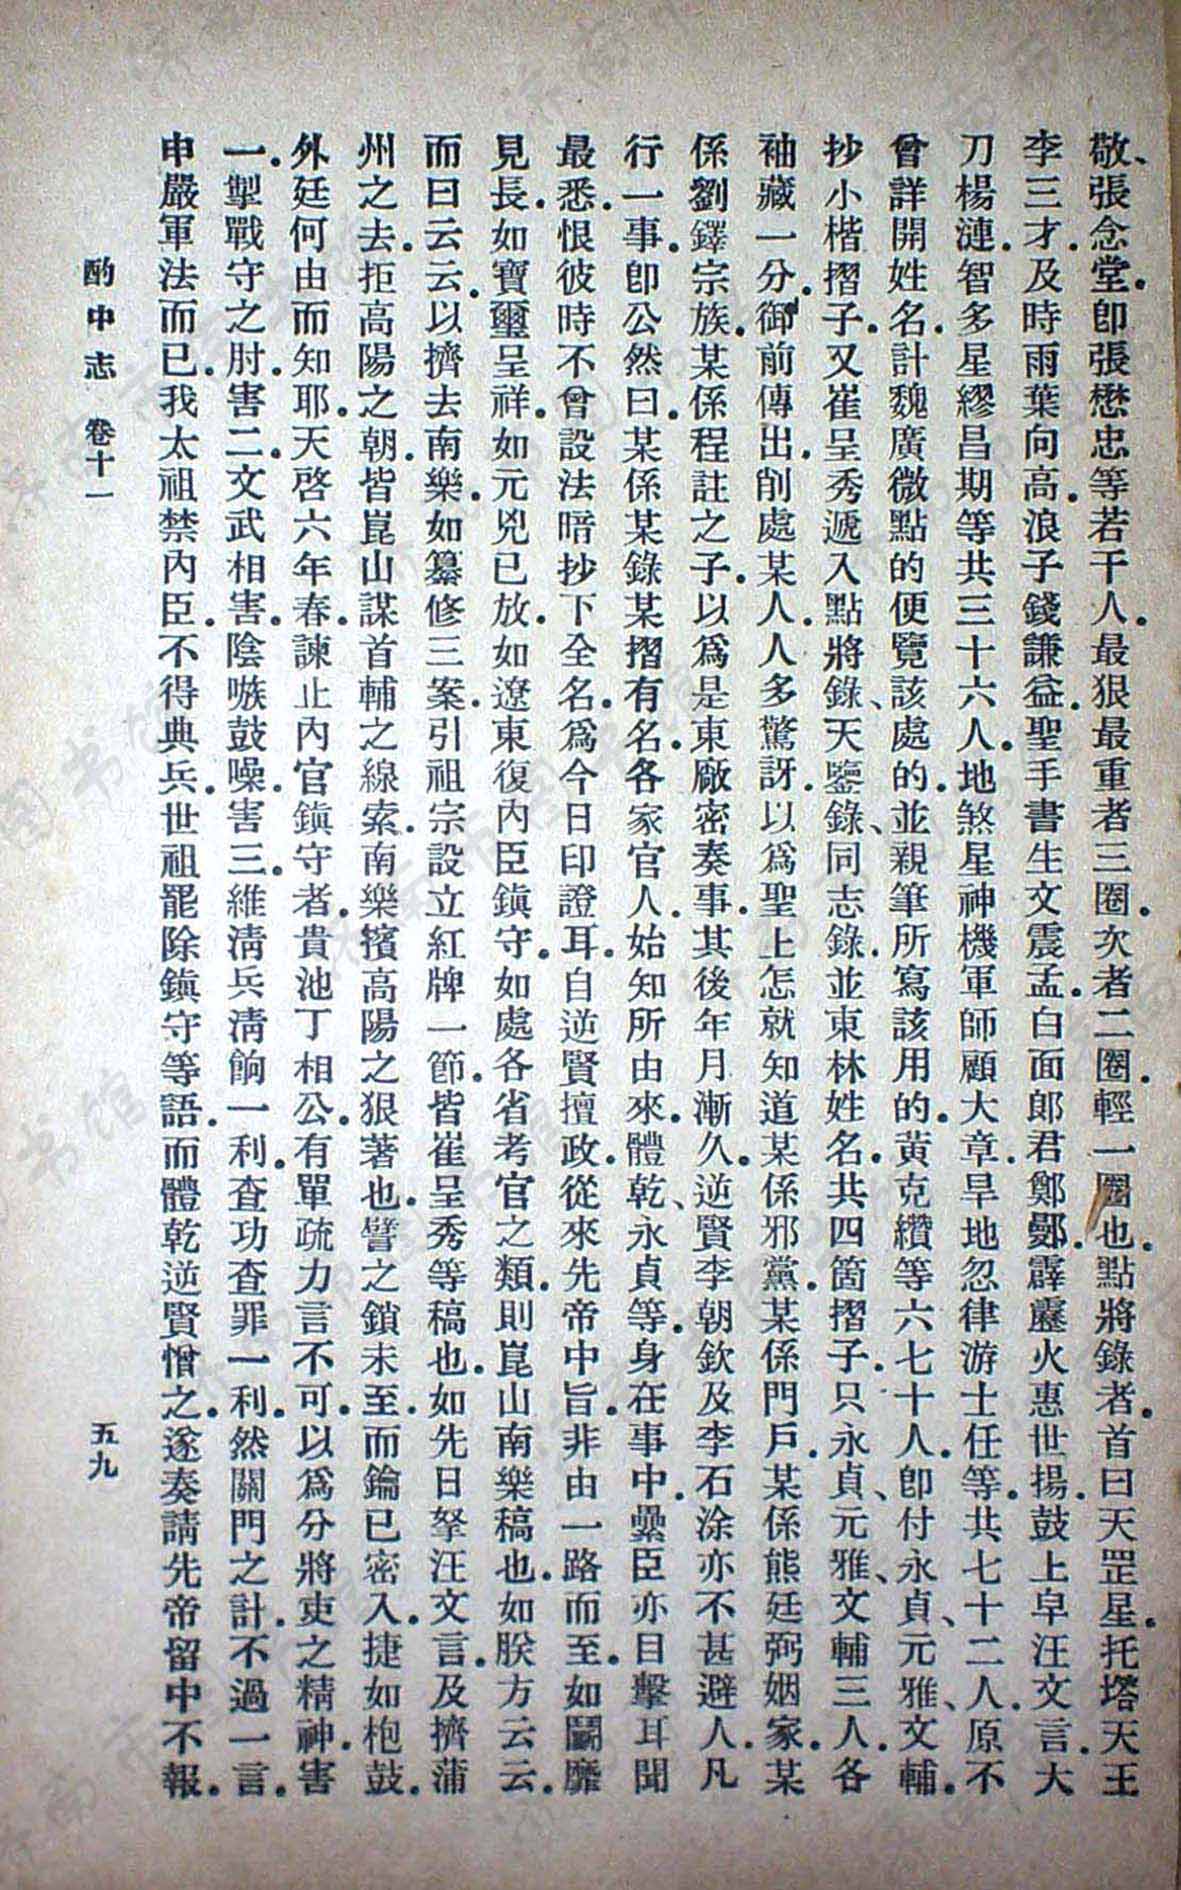 敬、張念堂。卽張懋忠等若干人。最狠最重者三圈。次者二圈。輕一圈也。點將錄者。首曰天罡星。托塔天王
李三才。及時雨葉向高。浪子錢謙益。聖手書生文震孟。白面郎君鄭鄤。霹靂火惠世揚。鼓上皁汪文言。大
刀楊漣。智多星繆昌期等共三十六人。地煞星神機軍師顧大章。旱地忽律游士任等。共七十二人。原不
曾詳開姓名。計魏廣微點的便覽該處的。並親筆所寫該用的。黃克纘等六七十人。卽付永貞、元雅、文輔。
抄小楷摺子。又崔呈秀遞入點將錄、天鑒錄、同志錄。並東林姓名。共四箇摺子。只永貞、元雅、文輔三人。各
袖藏一分。御前傳出。削處某人。人多驚訝。以爲聖上怎就知道某係邪黨。某係門戶。某係熊廷弼姻家。某
係劉鐸宗族。某係程註之子。以爲是東廠密奏事。其後年月漸久。逆賢李朝欽及李石涂亦不甚避人。凡
行一事。卽公然曰。某係某錄某摺有名。各家官人。始知所由來。體乾、永貞等。身在事中。纍臣亦目擊耳聞
最悉。恨彼時不曾設法暗抄下全名。爲今日印證耳。自逆賢擅政。從來先帝中旨。非由一路而至。如鬭靡
見長。如寶璽呈祥。如元兇已放。如遼東復內臣鎮守。如處各省考官之類。則崑山南樂稿也。如朕方云云。
而曰云云。以擠去南樂。如纂修三案。引祖宗設立紅牌一節。皆崔呈秀等稿也。如先日拏汪文言。及擠蒲
州之去。拒高陽之朝。皆崑山謀首輔之線索。南樂擯高陽之狠著也。譬之鎖未至。而鑰已密入。捷如枹鼓。
外廷何由而知耶。天啓六年春。諫止內官鎮守者。貴池丁相公。有單疏力言不可。以爲分將吏之精神。害
一。掣戰守之肘。害二。文武相害。陰嗾鼓噪。害三。維淸兵淸餉一利。查功查罪一利。然關門之計。不過一言。
申嚴軍法而已。我太祖禁內臣。不得典兵。世祖罷除鎮守等語。而體乾逆賢憎之。遂奏請先帝留中不報。
酌中志 卷十一
五九